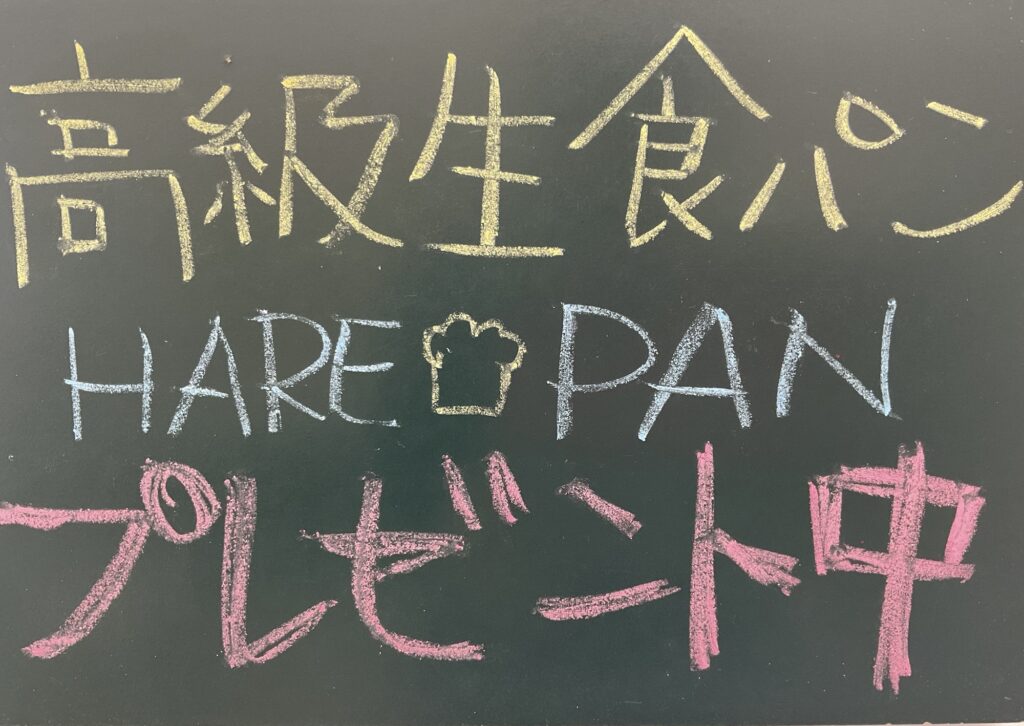 高級生食パン
HARE PAN
プレゼント中